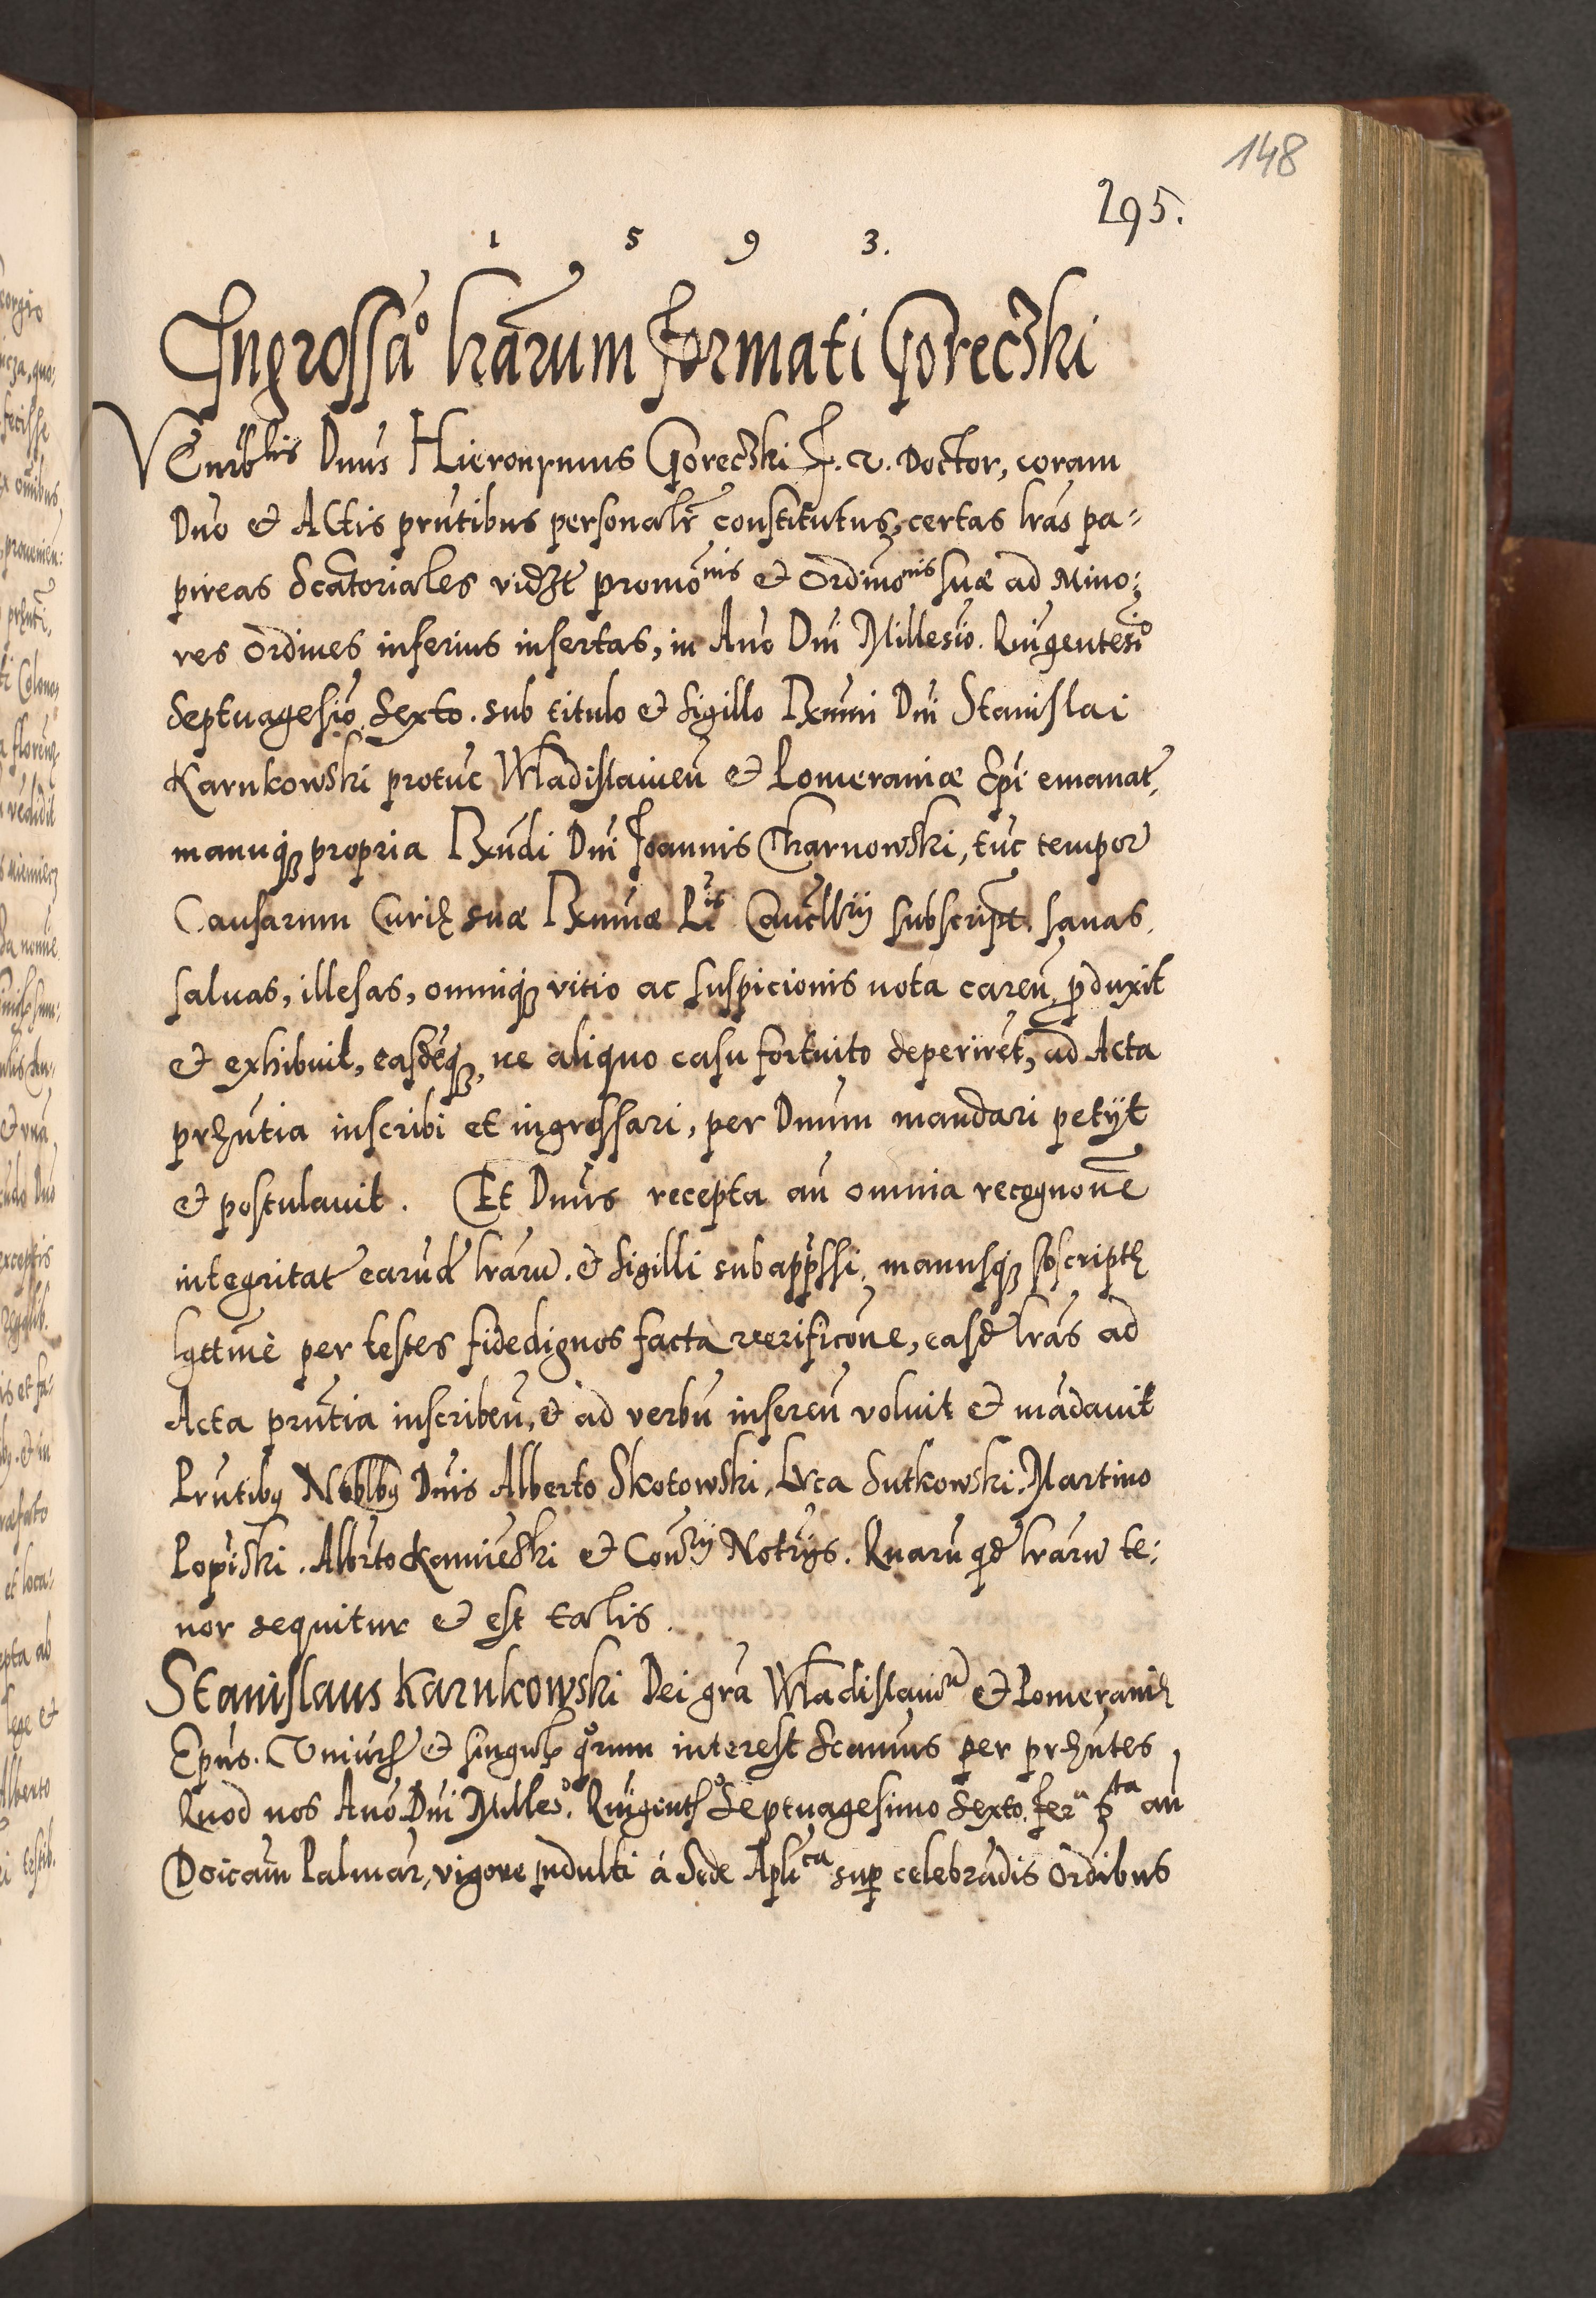 148
295.
1 5 9 3.
Ingrossao lrarum formati Goreczki
Venrblis Dnus Hieronymus Goreczki J. V. Doctor, coram
Dno et Actis prntibus personalr constitutus, certas lras pa-
pireas Scatoriales vidzt promonis et Ordinonis suæ ad Mino-
res Ordines inferius insertas, in Ano Dni Millesio. Quigentesio
Septuagesio Sexto. sub titulo et Sigillo Rxmni Dni Stanislai
Karnkowski protuc Wladislauien et Pomeraniæ Epi emanat,
manuq propria Rxndi Dni Joannis Charnowski, tuc tempor
Causarum Curiæ suæ Rxmnæ Ptis Cancllrij subscript. sanas,
saluas, illesas, omniq vitio ac suspicionis nota caren, pduxit
et exhibuit, easdeq, ne aliquo casu fortuito deperiret, ad Acta
przntia inscribi et ingrossari, per Dnum mandari petijt
et postulauit. Et Dnus recepta an omnia recognone
integritat earud lraru. et Sigilli subappssi, manusq sbscriptæ
lgttme per testes fidedignos facta verificone, easd lras ad
Acta prntia inscriben, et ad verbu inseren voluit et madauit
Prntibq Noblbq Dnis Alberto Skotowski, Luca Sutkowski, Martino
Popiski. Albrto Kamieski et Consrij Notrijs. Quaru qd lraru te-
nor sequitur et est talis.
Stanislaus Karnkowski Dei gra Wladislauien et Pomeraniæ
Epus. Uniurs et singulis qorum interest Scamus per przntes
Quod nos Ano Dni Milleso. Quigents Septuagesimo Sexto. fera 6ta an
Doicam Palmar, vigore indulti á Sede Aplica sup celebradis Ordibus